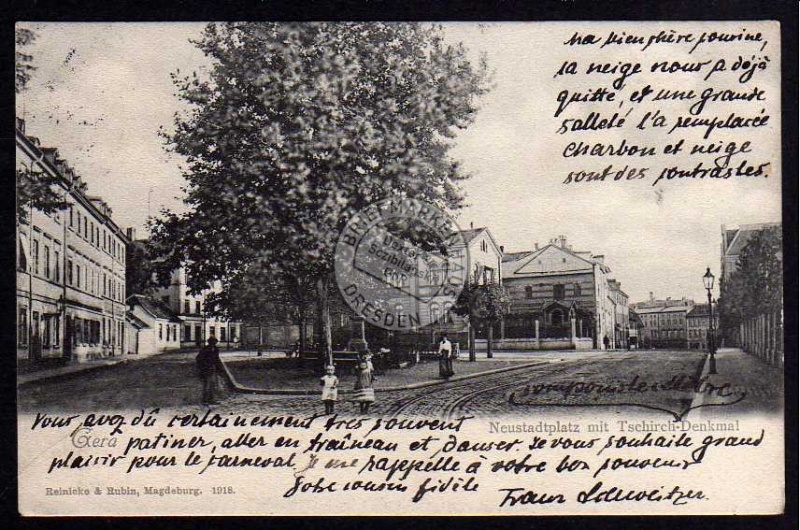 Ma bien chère pourine,
la neige nous a déjà
quitté, et une grande
salleté l'a remplacée
charbon et neige
sont des contrastes.
BRIEFMARKENHAUS
DRESDEN
Neustadtplatz mit Tschirch-Denkmal
Gera
Vous avez dû certainement très souvent
patiner, aller en traîneau et danser. Je vous souhaite grand
plaisir pour le carneval, je me rappelle à votre bon souvenir
Votre cousin fidèle
Franz Schweitzer.
Reinicke & Rubin, Magdeburg. 1918.